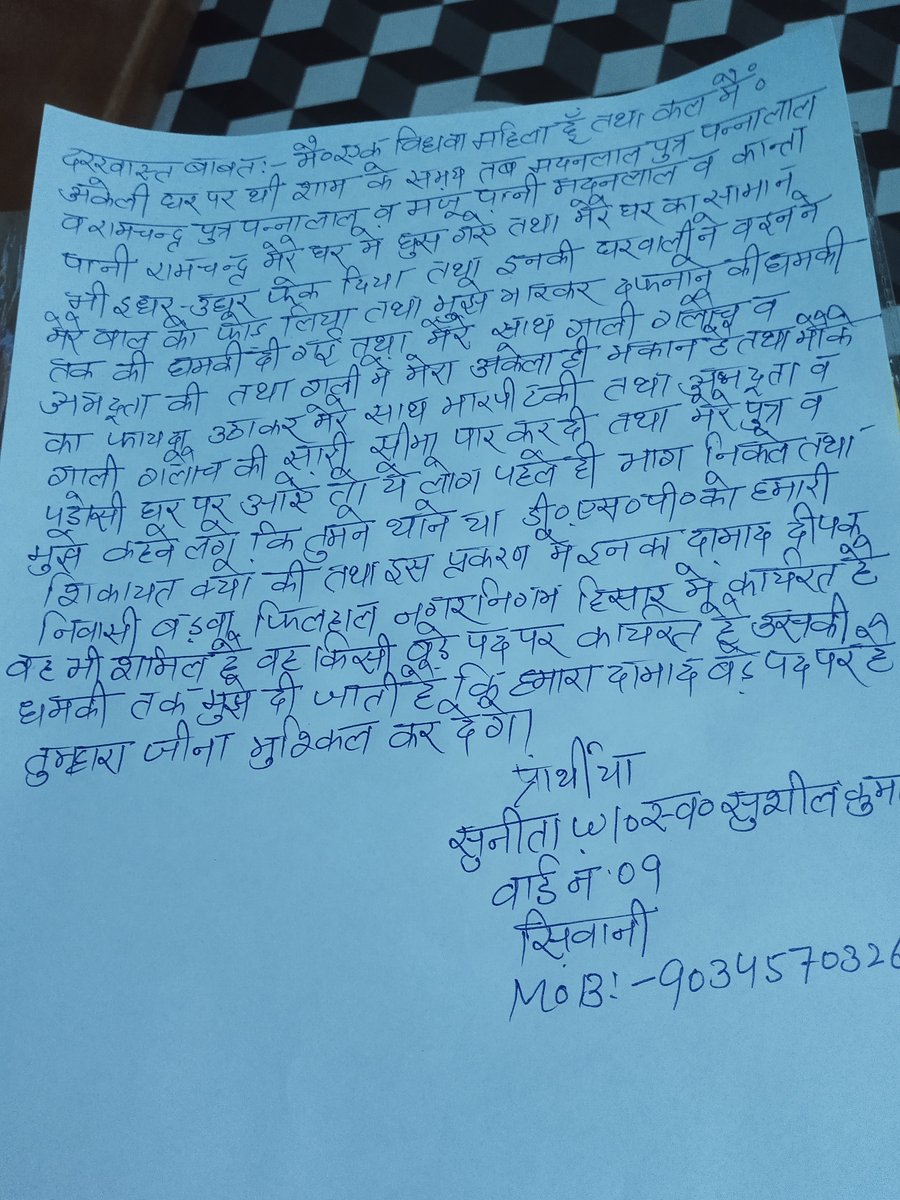 दरखास्त बाबत:- मै॰एक विधवा महिला हूँ तथा कल मैं॰
अकेली घर पर थी शाम के समय तब मदनलाल पुत्र पन्नालाल
व रामचन्द्र पुत्र पन्नालाल व मंजू पत्नी मदनलाल व कान्ता
पत्नी रामचन्द्र मेरे घर मे घुस गए तथा मेरे घर का सामान
भी इधर-उधर फेंक दिया तथा इनकी घरवाली ने व इनने
मेरे बाल को फाड़ लिया तथा मुझे मारकर दफनाने की धमकी
तक की धमकी दी गई तथा मेरे साथ गाली गलौच व
अभद्रता की तथा गली में मेरा अकेला ही मकान है तथा मौके
का फायदा उठाकर मेरे साथ मारपीट की तथा अभद्रता व
गाली गलोच की सारी सीमा पार कर दी तथा मेरे पुत्र व
पड़ोसी घर पर आए तो ये लोग पहले ही भाग निकले तथा
मुझे कहने लगे कि तुमने थाने या डी॰एस॰पी॰को हमारी
शिकायत क्यों की तथा इस प्रकरण मे इनका दामाद दीपक
निवासी बड़वा फिलहाल नगरनिगम हिसार मे कार्यरत है
वह भी शामिल है वह किसी बड़े पद पर कार्यरत है उसकी
धमकी तक मुझे दी जाती है कि हमारा दामाद बड़े पद पर है
तुम्हारा जीना मुश्किल कर देगा।
प्रार्थीया
सुनीता W/०स्व०सुशील कुमा
वार्ड नं 09
सिवानी
MoB:-9034570326